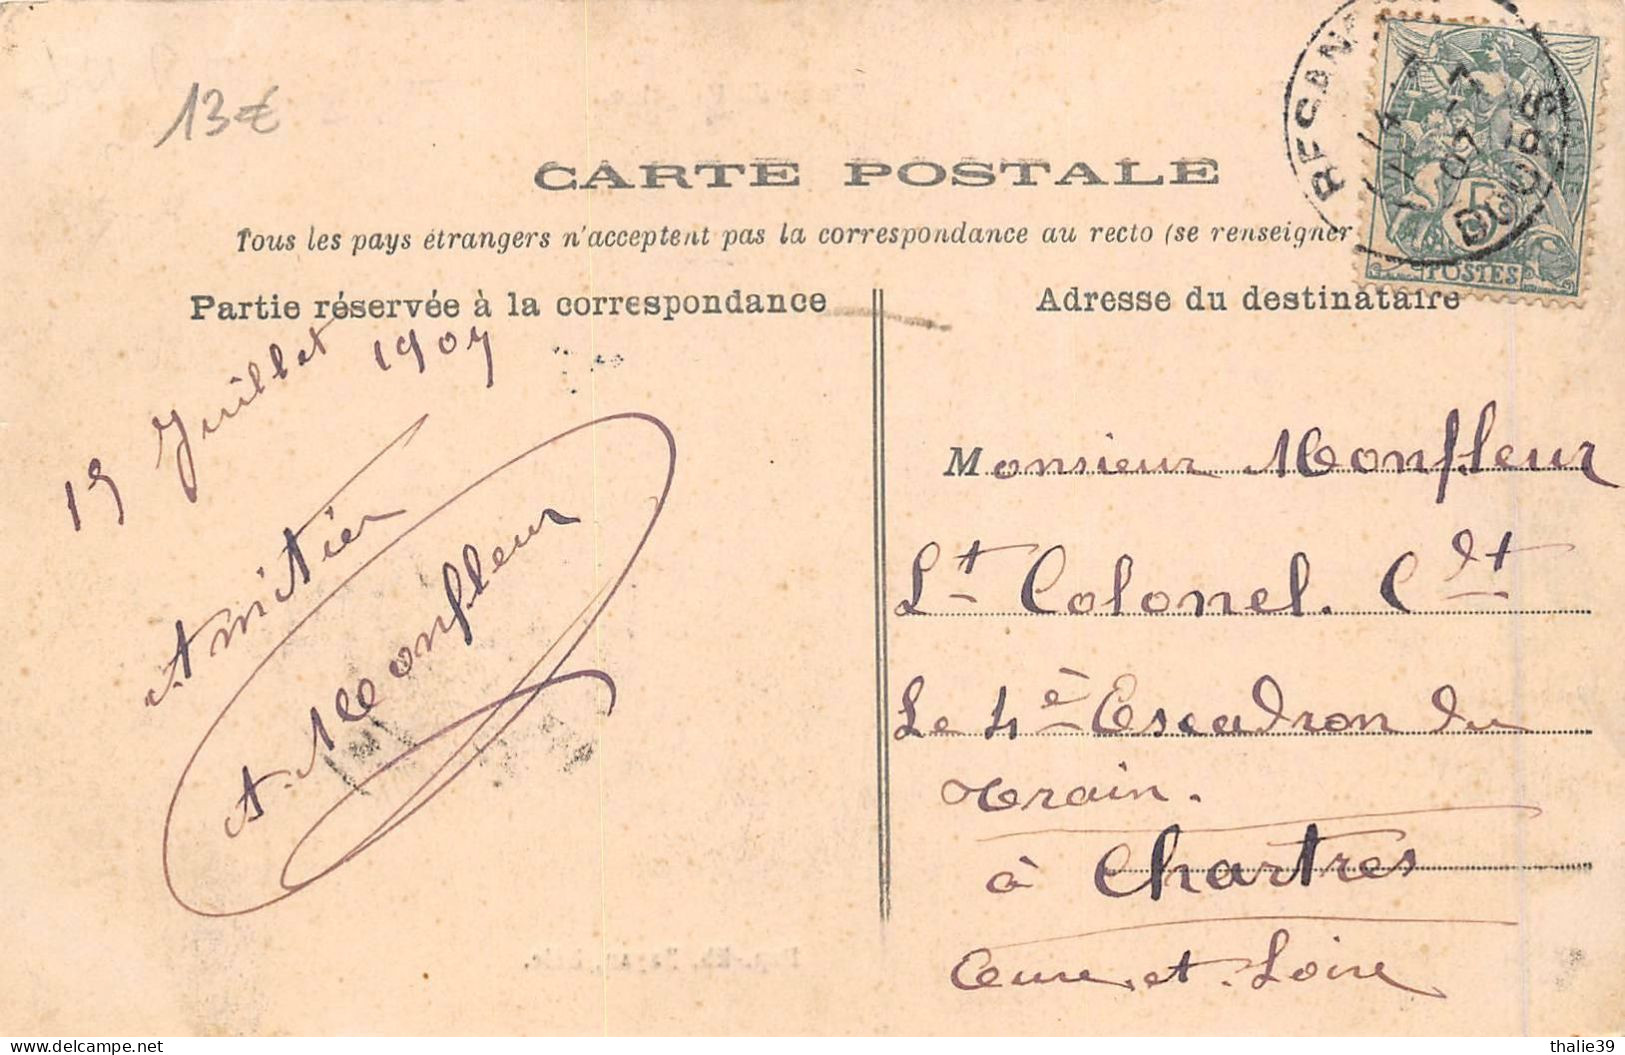 13€
CARTE POSTALE
Tous les pays étrangers n'acceptent pas la correspondance au recto (se renseigner
Partie réservée à la correspondance
Adresse du destinataire
POSTES
DOUBS
15 Juillet 1907
Amitiés
A. Monfleur
Monsieur Monfleur
Lt Colonel. Cdt
Le 4è Escadron du
Train.
à Chartres
Eure et Loire
delcampe.net
thalie39